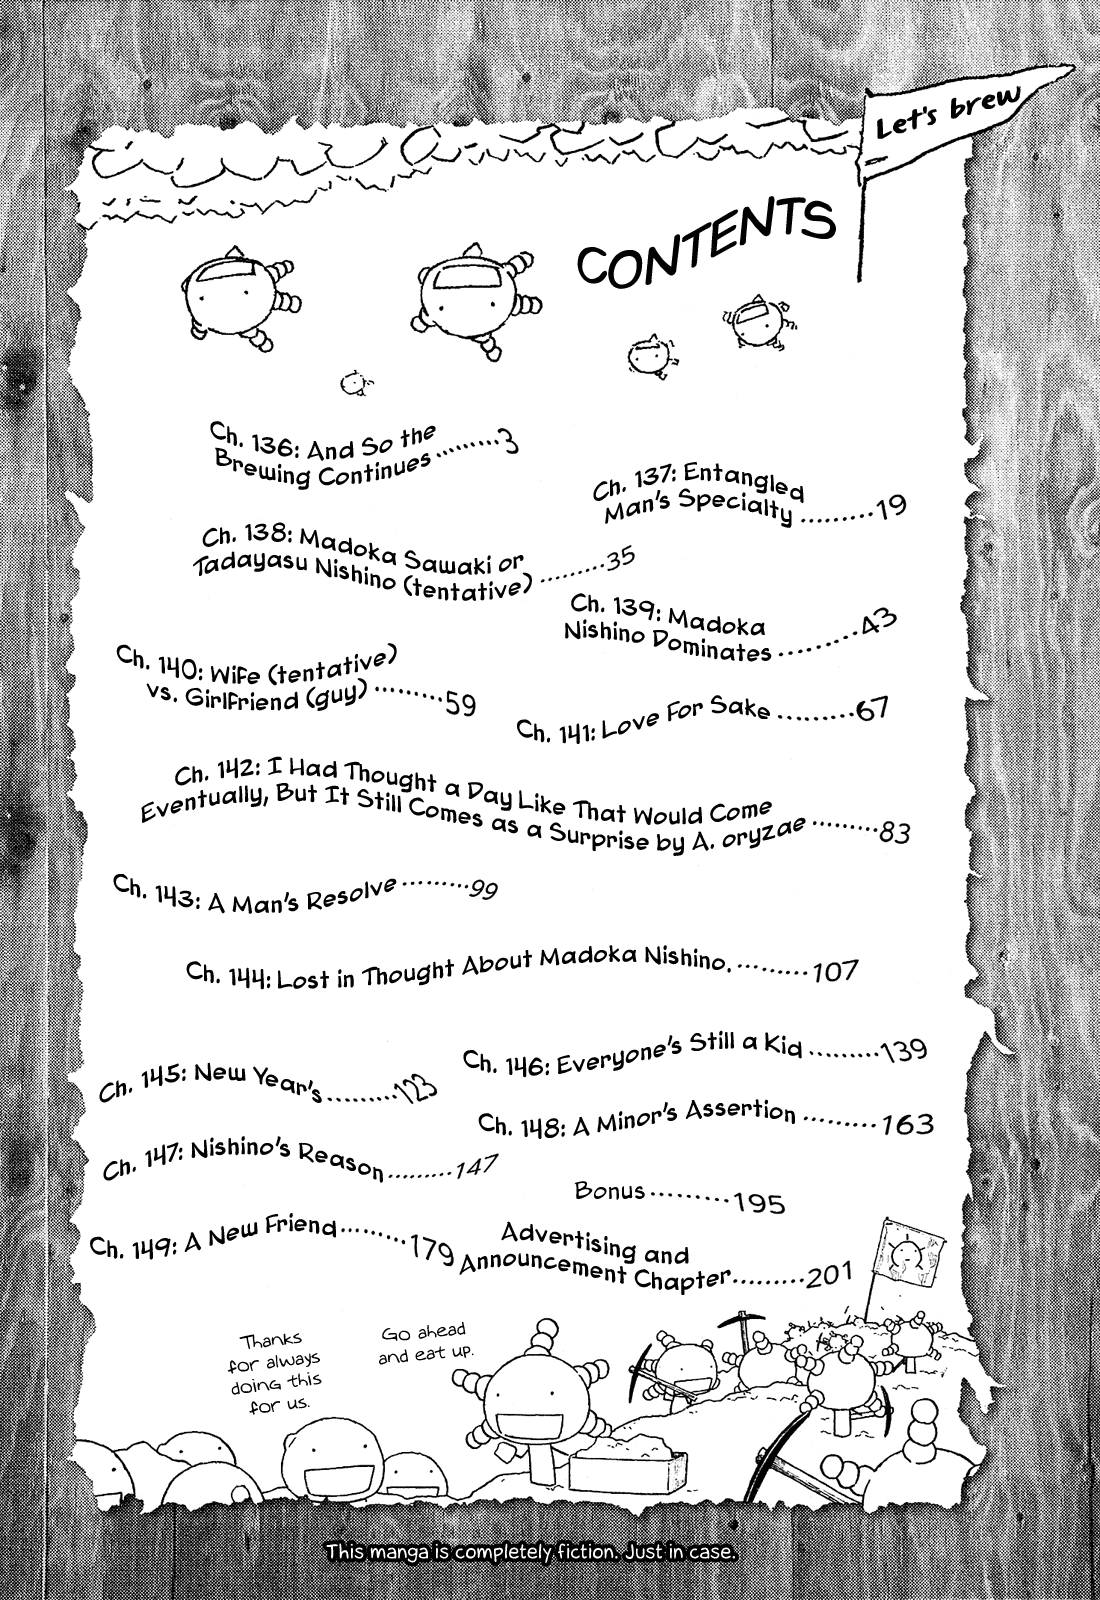 Let's brew
CONTENTS
Ch. 136: And So the
Brewing Continues·········3
Ch. 137: Entangled
Man's Specialty·········19
Ch. 138: Madoka Sawaki or
Tadayasu Nishino (tentative)·········35
Ch. 139: Madoka
Nishino Dominates·········43
Ch. 140: Wife (tentative)
vs. Girlfriend (guy)·········59
Ch. 141: Love For Sake·········67
Ch. 142: I Had Thought a Day Like That Would Come
Eventually, But It Still Comes as a Surprise by A. oryzae·········83
Ch. 143: A Man's Resolve·········99
Ch. 144: Lost in Thought About Madoka Nishino.·········107
Ch. 145: New Year's·········123
Ch. 146: Everyone's Still a Kid·········139
Ch. 147: Nishino's Reason·········147
Ch. 148: A Minor's Assertion·········163
Ch. 149: A New Friend·········179
Bonus·········195
Advertising and
Announcement Chapter·········201
Thanks
for always
doing this
for us.
Go ahead
and eat up.
This manga is completely fiction. Just in case.